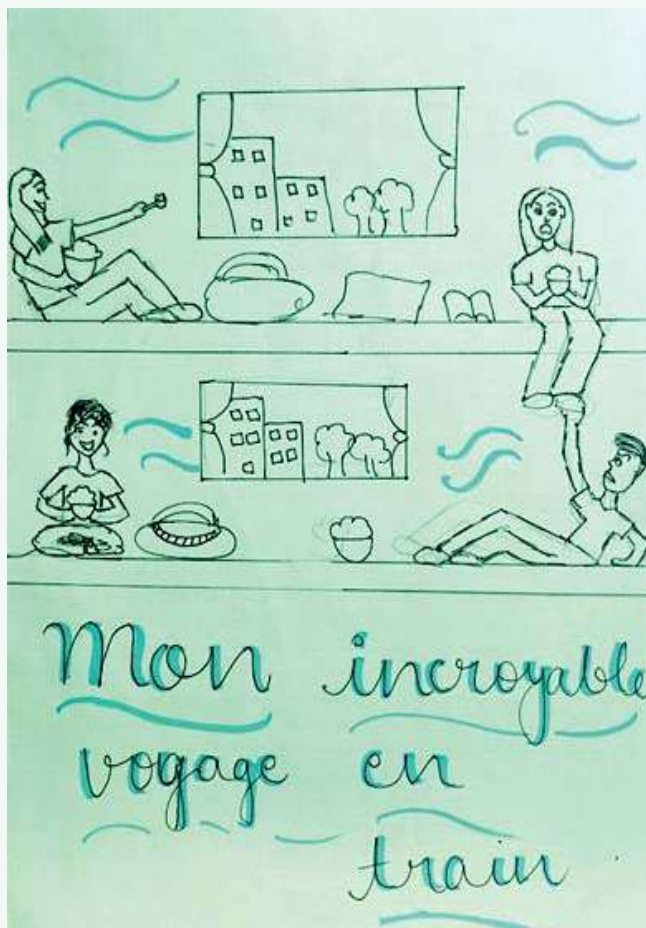 Mon incroyable
voyage en
train